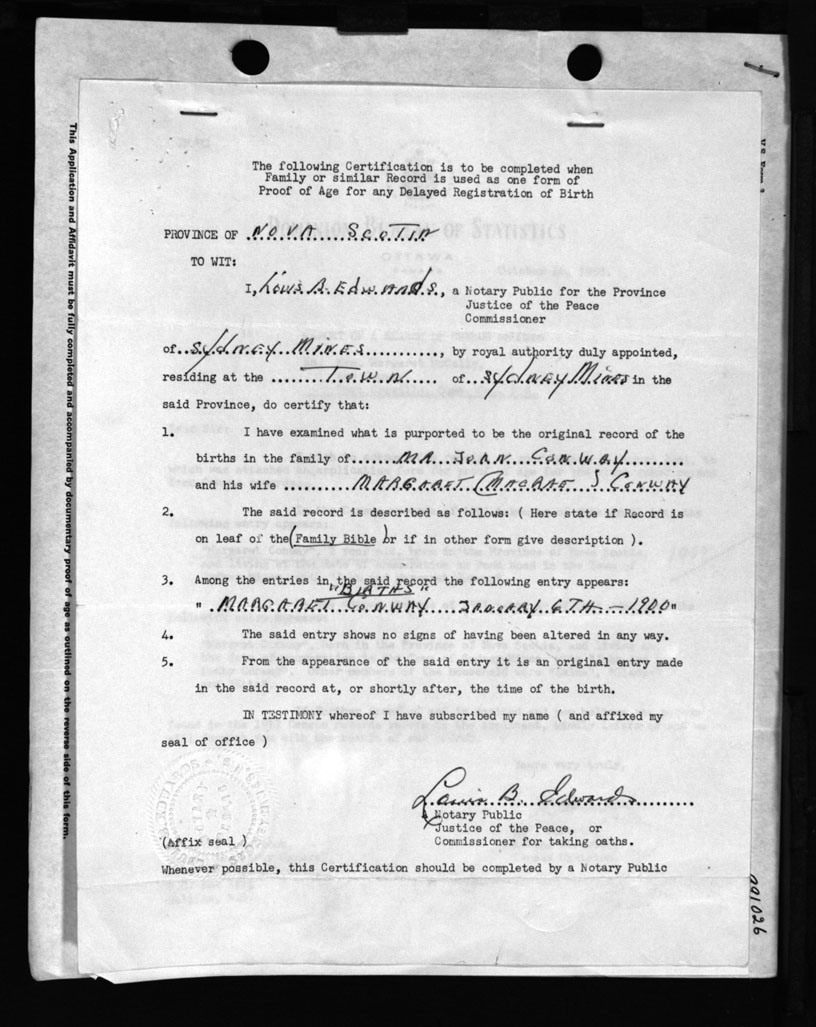 The following Certification is to be completed when
Family or similar Record is used as one form of
Proof of Age for any Delayed Registration of Birth
PROVINCE OF NOVA SCOTIA
TO WIT:
I, Louis B. Edwards, a Notary Public for the Province
Justice of the Peace
Commissioner
of Sydney Mines, by royal authority duly appointed,
residing at the TOWN of Sydney Mines in the
said Province, do certify that:
1. I have examined what is purported to be the original record of the
births in the family of MR. JOHN CONWAY
and his wife MARGARET (MACRAE) CONWAY
2. The said record is described as follows: ( Here state if Record is
on leaf of the (Family Bible) or if in other form give description ).
3. Among the entries in the said record the following entry appears:
"BIRTHS"
" MARGARET CONWAY JANUARY 6TH - 1900"
4. The said entry shows no signs of having been altered in any way.
5. From the appearance of the said entry it is an original entry made
in the said record at, or shortly after, the time of the birth.
IN TESTIMONY whereof I have subscribed my name ( and affixed my
seal of office )
Louis B. Edwards
A Notary Public
Justice of the Peace, or
Commissioner for taking oaths.
(Affix seal )
Whenever possible, this Certification should be completed by a Notary Public
This Application and Affidavit must be fully completed and accompanied by documentary proof of age as outlined on the reverse side of this form.
001026
DOMINION BUREAU OF STATISTICS
OTTAWA
CANADA